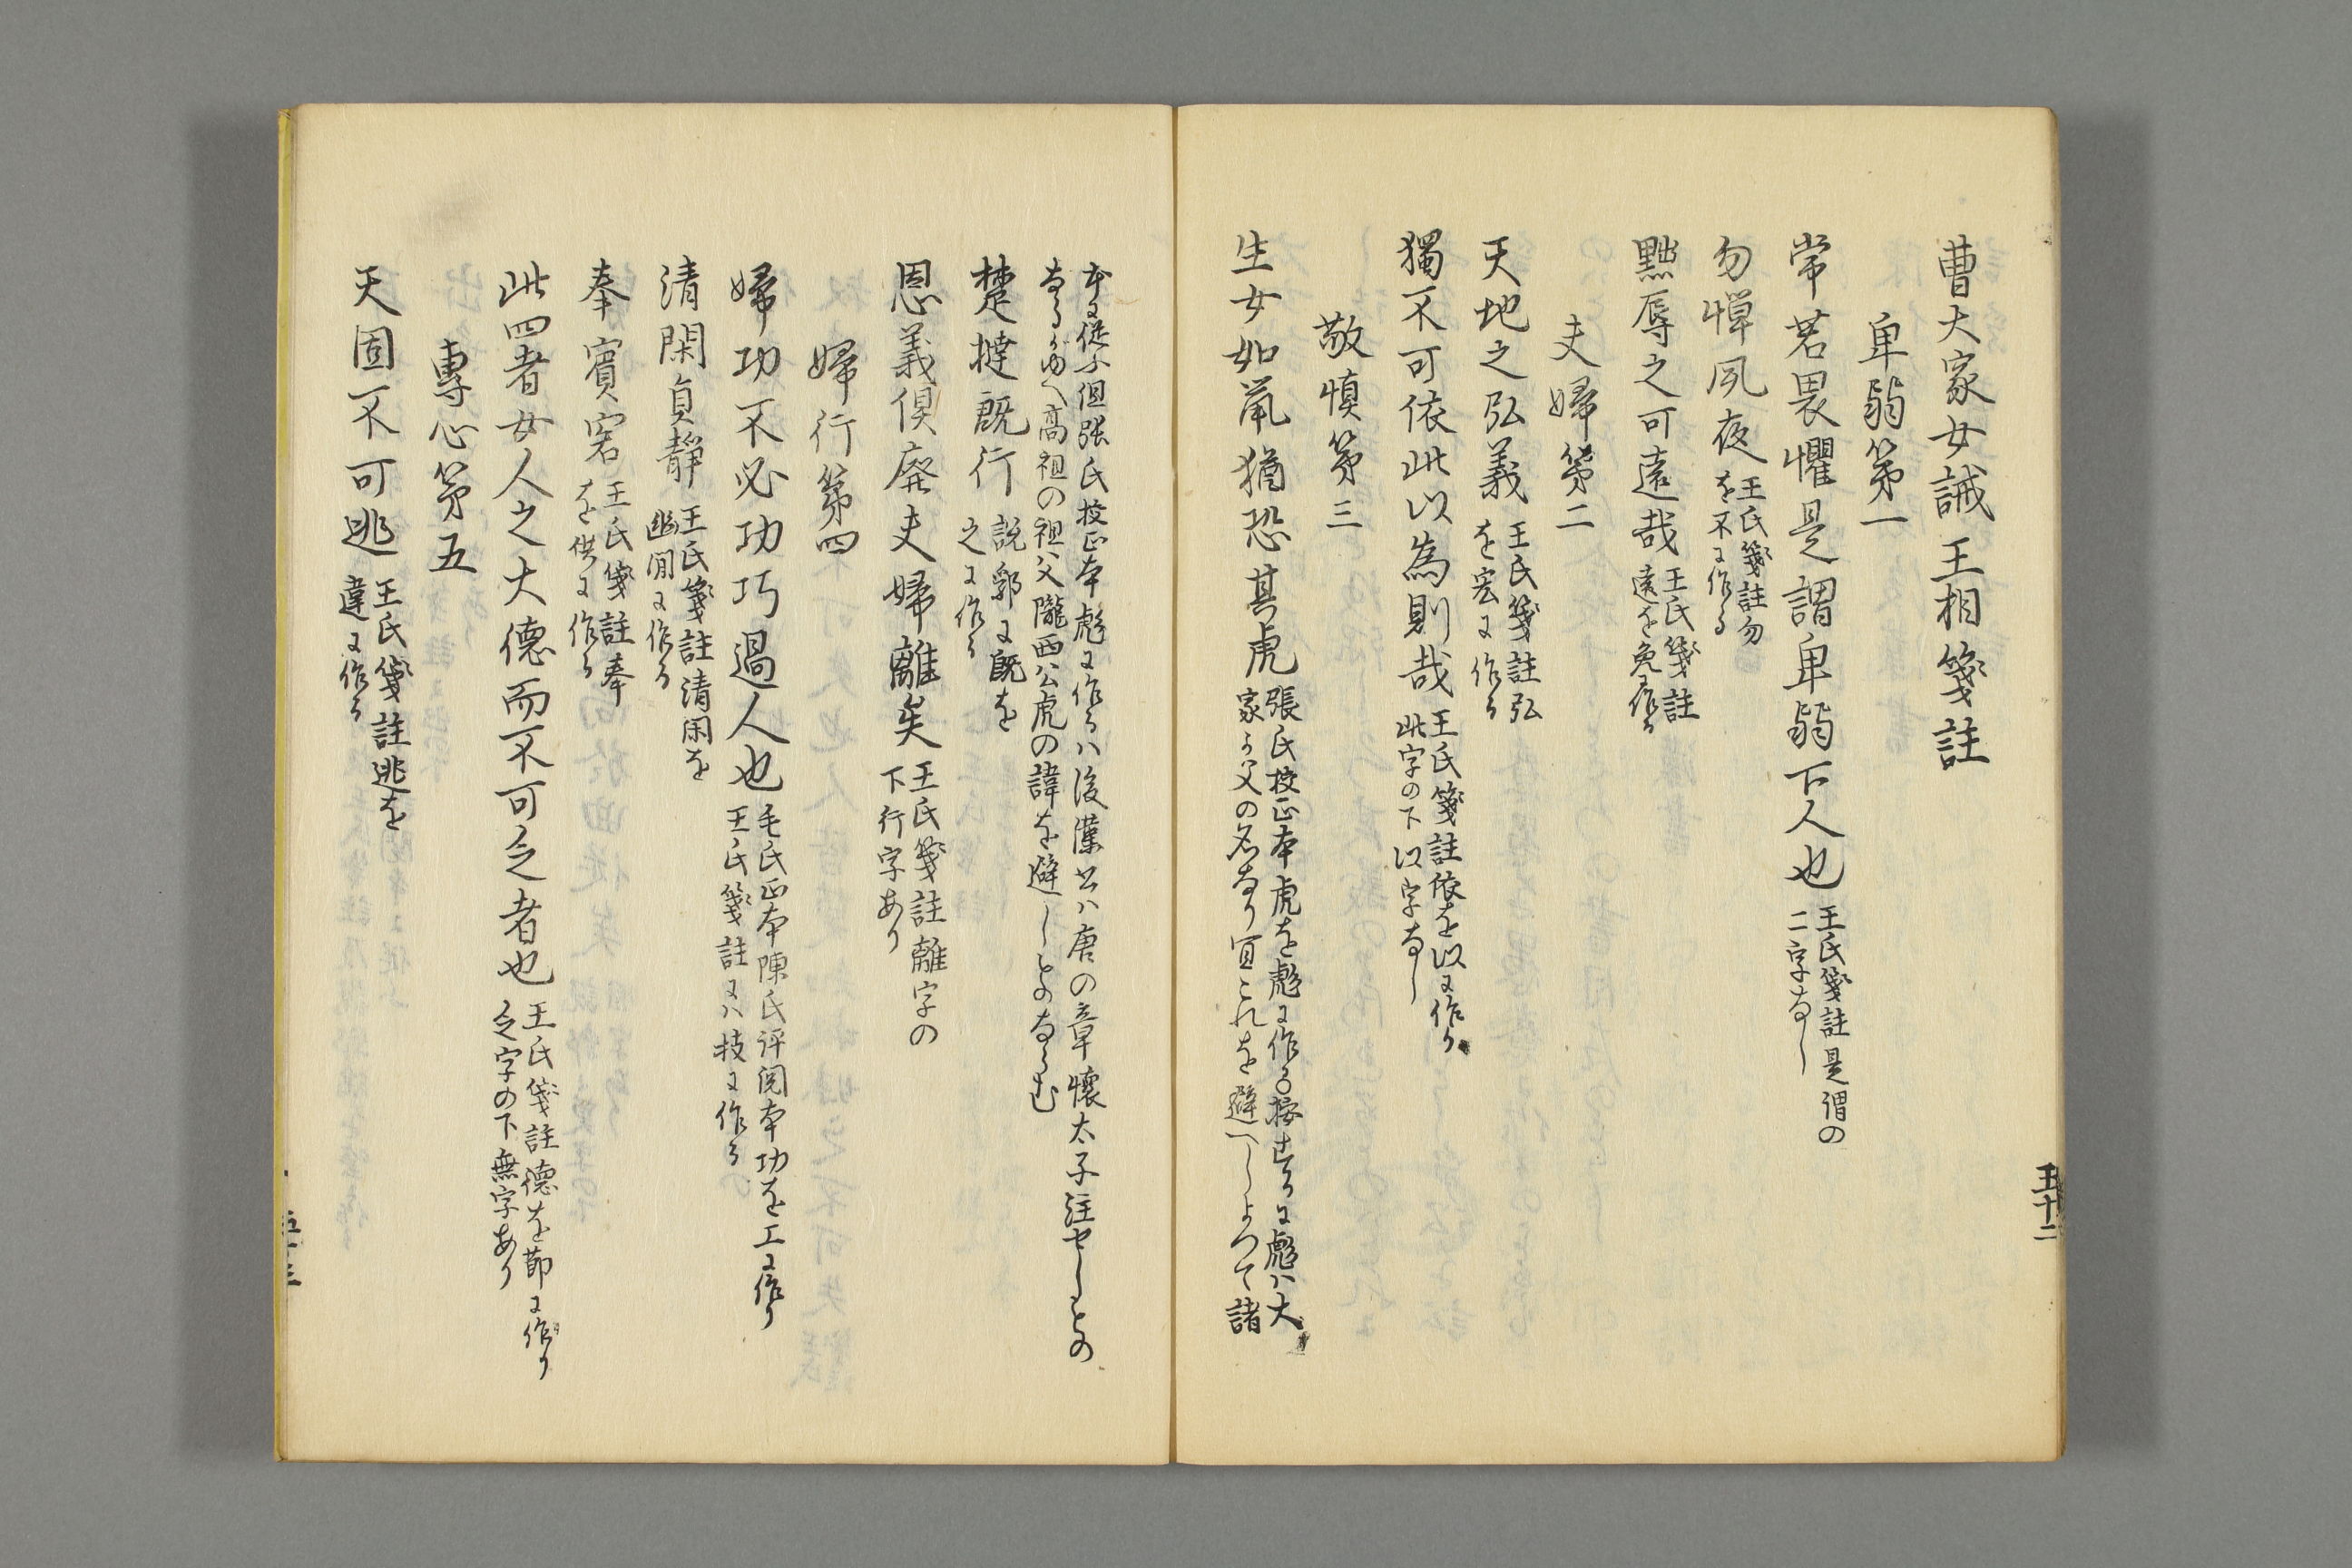 曹大家女誡王相箋註
卑弱第一
常若畏懼是謂卑弱下人也
王氏箋註是謂の
二字なし
勿憚夙夜
王氏箋註勿
を不に作る
黜辱之可遠哉
王氏箋註
遠を免に作る
夫婦第二
天地之弘義
王氏箋註弘
を宏に作る
獨不可依此以為則哉
王氏箋註依を以に作り
此字の下以字なし
敬慎第三
生女如鼠猶恐其虎
張氏校正本虎を彪に作る按するに彪ハ大
家か父の名なり宜これを避へしよつて諸
本に従ふ但張氏校正本彪に作るハ後漢書ハ唐の章懐太子注せしもの
なるがゆへ高祖の祖父隴西公虎の諱を避しものならむ
楚撻既行
説郛に既を
之に作る
恩義倶廃夫婦離矣
王氏箋註離字の
下行字あり
婦行第四
婦功不必功巧過人也
毛氏正本陳氏評閲本功を工に作り
王氏箋註にハ技に作る
清閑貞靜
王氏箋註清閑を
幽閒に作る
奉賓客
王氏箋註奉
を供に作る
此四者女人之大德而不可乏者也
王氏箋註德を節に作り
乏字の下無字あり
專心第五
天固不可逃
王氏箋註逃を
違に作る
五十二